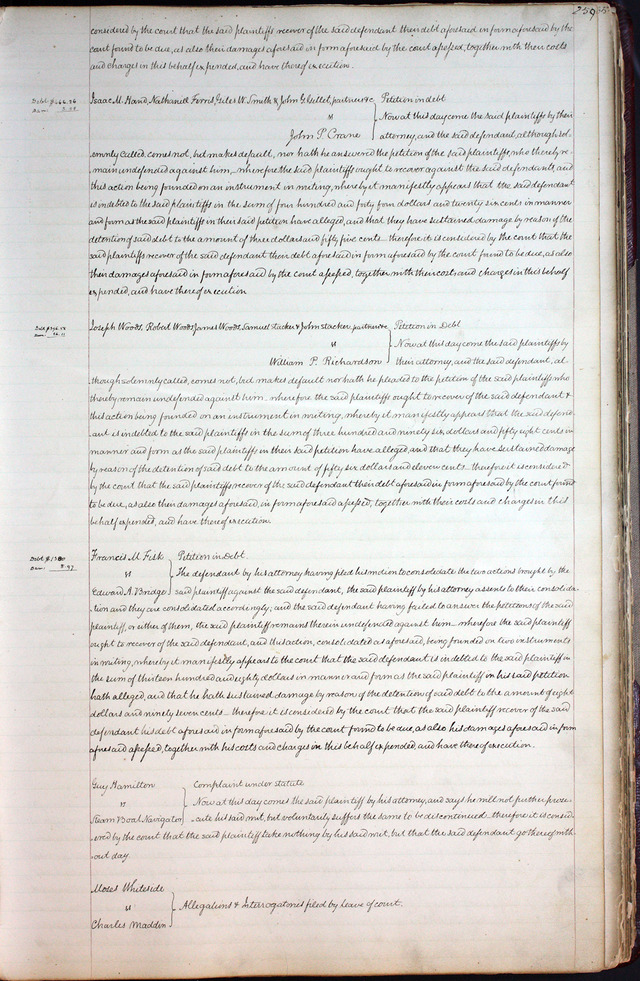 259
considered by the court that the said plaintiffs recover of the said defendant their debt aforesaid in form aforesaid by the
court found to be due, as also their damages aforesaid in form aforesaid by the court assessed, together with their costs
and charges in this behalf expended, and have thereof execution.
Debt $444.26
Dam: 3.55
Isaac M. Hand, Nathaniel Ferris, Giles W. Smith & John G. Gillet, partners &c Petition in debt
vs Now at this day come the said plaintiffs by their
John P. Crane attorney, and the said defendant, although sol-
emnly called, comes not, but makes default, nor hath he answered the petition of the said plaintiffs, who thereby re-
main undefended against him_ wherefore the said plaintiff ought to recover against the said defendant, and
this action being founded on an instrument in writing, whereby it manifestly appears that the said defendant
is indebted to the said plaintiffs in the sum of four hundred and forty four dollars and twenty six cents in manner
and form as the said plaintiffs in their said petition have alleged, and that they have sustained damage by reason of the
detention of said debt to the amount of three dollars and fifty five cents_ therefore it is considered by the court that the
said plaintiffs recover of the said defendant their debt aforesaid in form aforesaid by the court found to be due, as also
their damages aforesaid in form aforesaid by the court assessed, together with their costs and charges in this behalf
expended, and have thereof execution
Debt $396.58
Dam: 56.11
Joseph Woods, Robert Woods, James Woods, Samuel Stacker & John Stacker, partners &c Petition in Debt
vs Now at this day come the said plaintiffs by
William P. Richardson their attorney, and the said defendant, al-
though solemnly called, comes not, but makes default nor hath he pleaded to the petition of the said plaintiffs who
thereby remain undefended against him_ wherefore the said plaintiffs ought to recover of the said defendant &
this action being founded on an instrument in writing, whereby it manifestly appears that the said defend-
ant is indebted to the said plaintiffs in the sum of three hundred and ninety six dollars and fifty eight cents in
manner and form as the said plaintiffs in their said petition have alleged, and that they have sustained damage
by reason of the detention of said debt to the amount of fifty six dollars and eleven cents_ therefore it is considered
by the court that the said plaintiffs recover of the said defendant their debt aforesaid in form aforesaid by the court found
to be due, as also their damages aforesaid, in form aforesaid assessed, together with their costs and charges in this
behalf expended, and have thereof execution.
Debt $1380
Dam: 8.97
Francis M. Fisk Petition in Debt.
vs The defendant by his attorney having filed his motion to consolidate the two actions brought by the
Edward A. Bridge said plaintiff against the said defendant, the said plaintiff by his attorney assents to their consolida-
tion and they are consolidated accordingly; and the said defendant having failed to answer the petitions of the said
plaintiff, or either of them, the said plaintiff remains therein undefended against him_ wherefore the said plaintiff
ought to recover of the said defendant, and this action, consolidated as aforesaid, being founded on two instruments
in writing, whereby it manifestly appears to the court that the said defendant is indebted to the said plaintiff in
the sum of thirteen hundred and eighty dollars in manner and form as the said plaintiff in his said petition
hath alleged, and that he hath sustained damage by reason of the detention of said debt to the amount of eight
dollars and ninety seven cents_ therefore it is considered by the court that the said plaintiff recover of the said
defendant his debt aforesaid in form aforesaid by the court found to be due, as also his damages aforesaid in form
aforesaid assessed, together with his costs and charges in this behalf expended, and have thereof execution.
Guy Hamilton Complaint under statute
vs Now at this day comes the said plaintiff by his attorney, and says he will not further prose-
Steam Boat Navigator cute his said suit, but voluntarily suffers the same to be discontinued_ therefore it is consid-
ered by the court that the said plaintiff take nothing by his said writ, but that the said defendant go thereof with-
out day.
Moses Whiteside
vs Allegations & Interrogatories filed by leave of court.
Charles Maddin